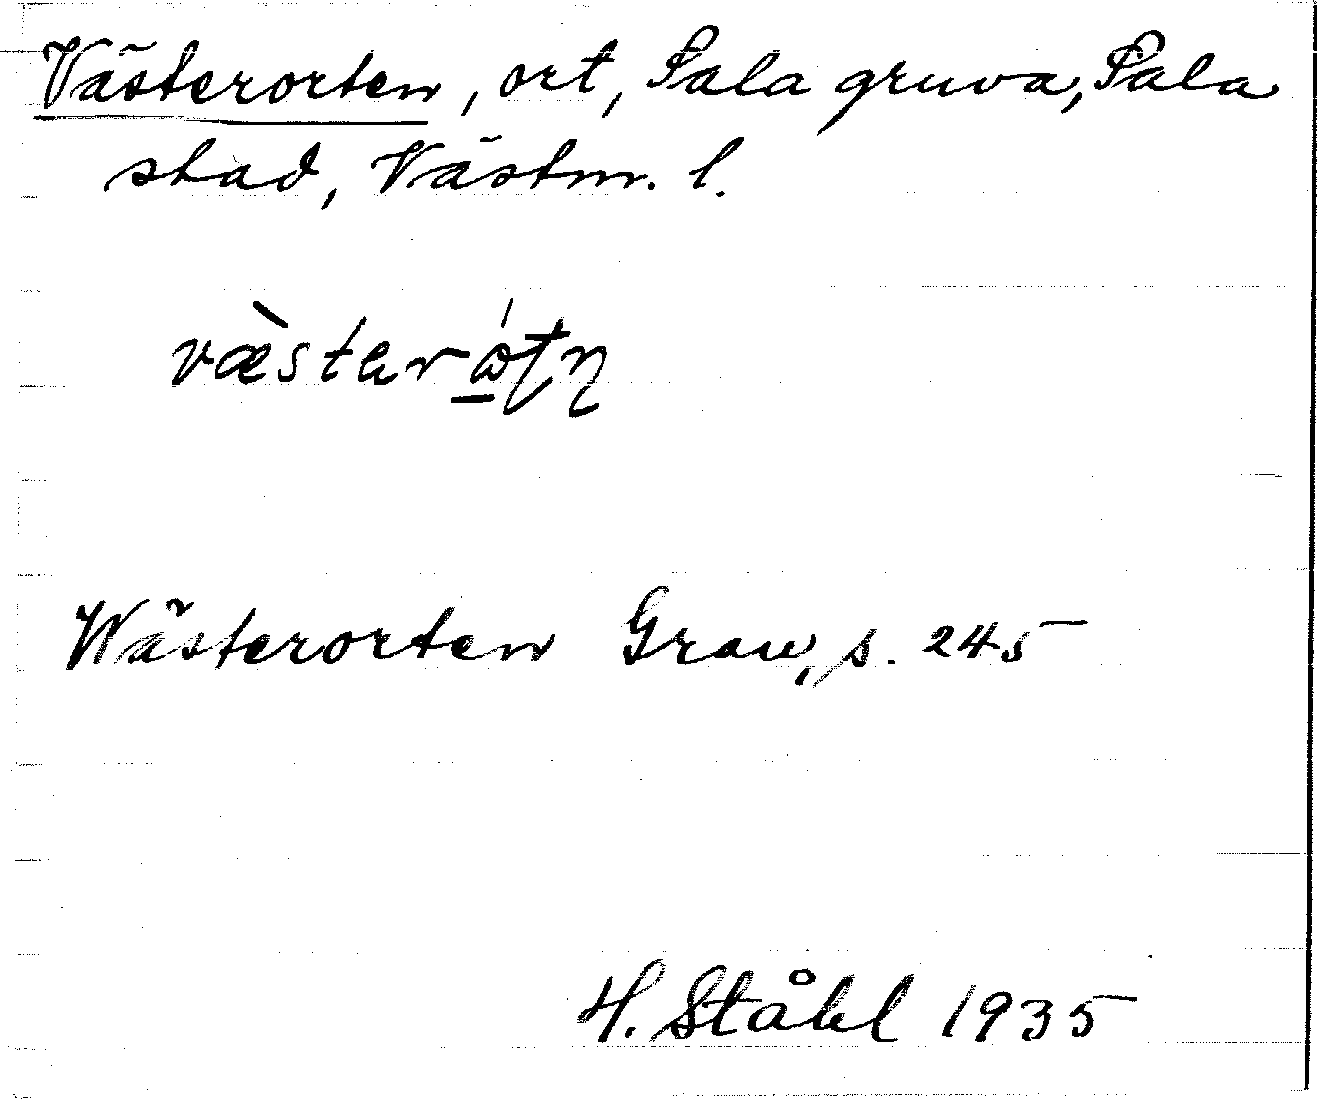 Västerorten, ort, Sala gruva, Sala
stad, Västm. l.
Wästerorten Grau, s. 245
H. Ståhl 1935